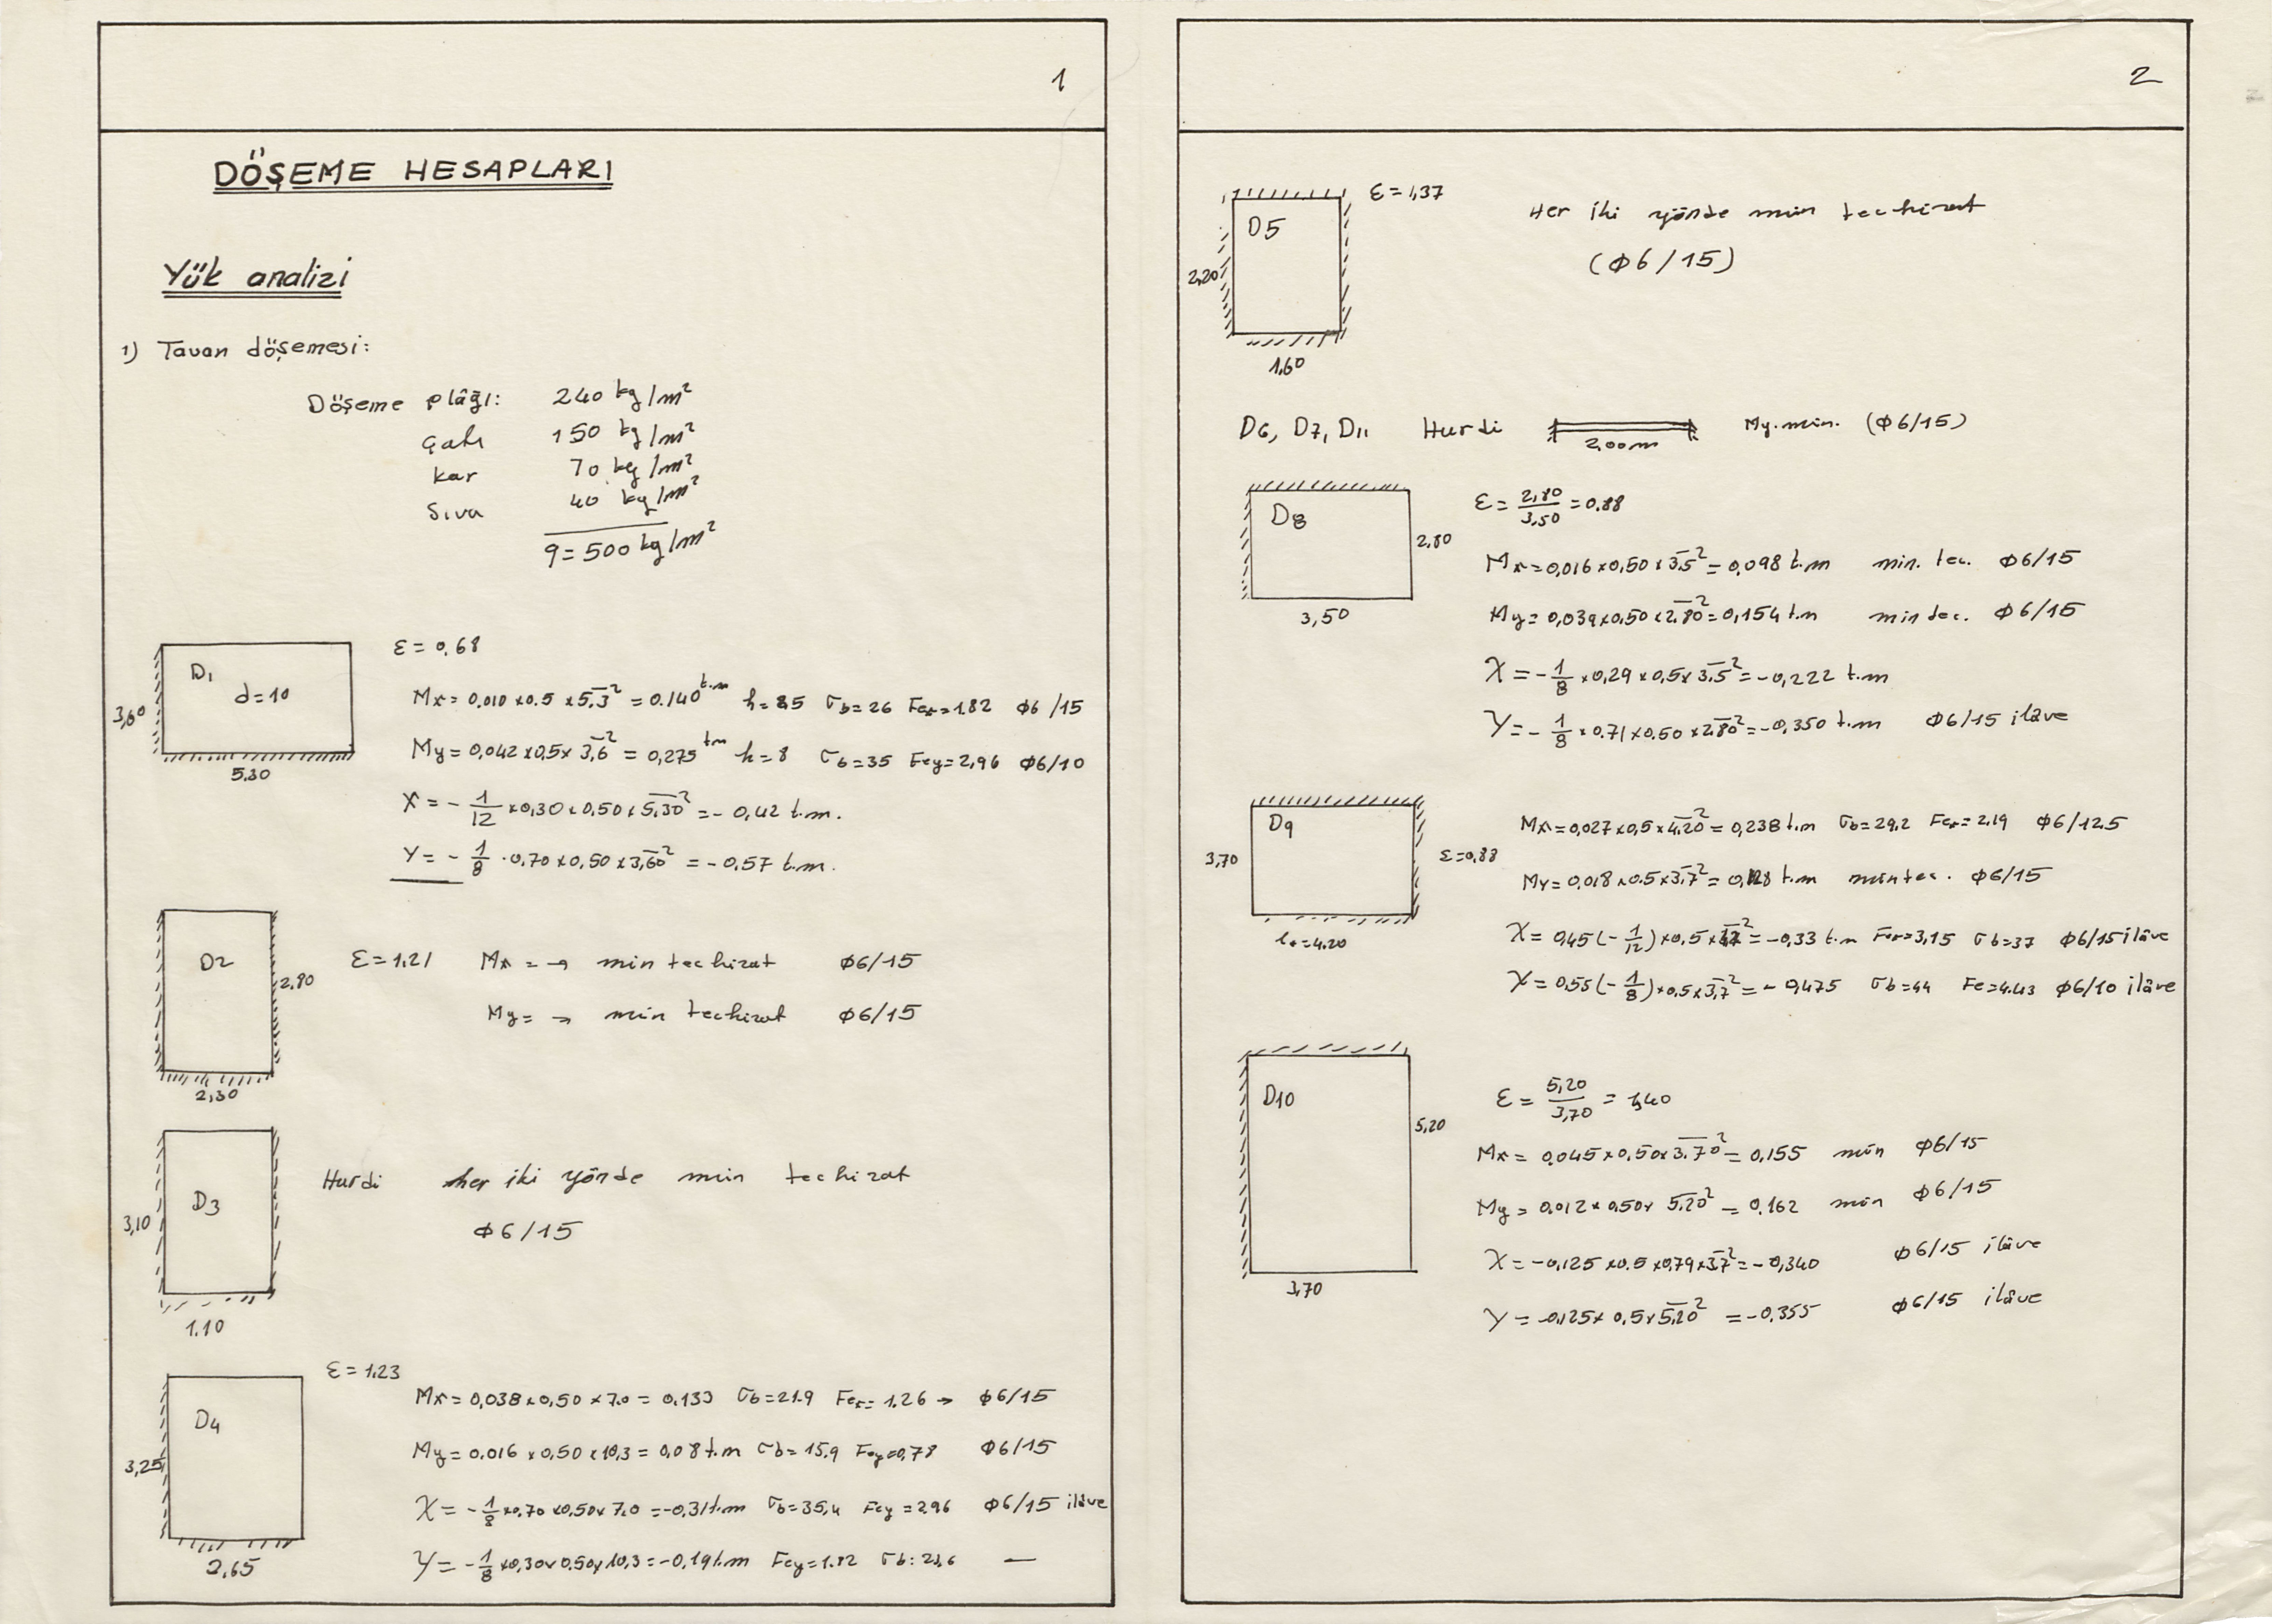 1
DÖŞEME HESAPLARI
Yük analizi
1) Tavan döşemesi:
Döşeme plâğı: 240 kg/m²
Çatı 150 kg/m²
kar 70 kg/m²
Sıva 40 kg/m²
q=500 kg/m²
D1
d=10
3,60
5.30
ε=0,68
Mx=0,010x0.5x5.3²=0.140 t.m h=8.5 σb=26 Fex=1.82 ϕ6/15
My=0,042x0,5x3,6²=0,275 tm h=8 σb=35 Fey=2,96 ϕ6/10
X=-1/12x0,30x0,50x5,30²=-0,42 t.m.
Y=-1/8·0,70x0,50x3,60²=-0,57 t.m.
D2
2.80
2,30
ε=1.21 Mx=→ min techizat ϕ6/15
My=→ min techizat ϕ6/15
D3
3,10
1.10
Hurdi her iki yönde min techizat
ϕ6/15
D4
3,25
2,65
ε=1.23
Mx=0,038x0,50x7.0=0.133 σb=21.9 Fex=1.26→ ϕ6/15
My=0.016x0,50x10,3=0,08 t.m σb=15.9 Fey=0,78 ϕ6/15
X=-1/8x0,70x0,50x7,0=-0,31 t.m σb=35,4 Fey=2.96 ϕ6/15 ilâve
Y=-1/8x0,30x0.50x10,3=-0,19 t.m Fey=1.82 σb: —
2
D5
2,20
1,60
ε=1,37
Her iki yönde min techizat
(ϕ6/15)
D6, D7, D11 Hurdi 2,00m My.min. (ϕ6/15)
D8
2,80
3,50
ε=2,80/3,50=0.88
Mx=0,016x0,50x3.5²=0,098 t.m min. tec. ϕ6/15
My=0,039x0,50x2,80²=0,154 t.m min tec. ϕ6/15
X=-1/8x0,29x0,5x3.5²=-0,222 t.m
Y=-1/8x0.71x0,50x2.80²=-0,350 t.m ϕ6/15 ilâve
D9
3,70
ε=0,88
lx=4.20
Mx=0,027x0,5x4,20²=0,238 t.m σb=29.2 Fex=2.19 ϕ6/12.5
My=0,018x0.5x3.7²= t.m min tec. ϕ6/15
X=0,45(-1/12)x0,5x²=-0,33 t.m Fex=3,15 σb=37 ϕ6/15 ilâve
Y=0,55(-1/8)x0,5x3,7²=-0,475 σb=44 Fe=4.43 ϕ6/10 ilâve
D10
5,20
3,70
ε=5,20/3,70=1,40
Mx=0,045x0,50x3.70²=0,155 min ϕ6/15
My=0,012x0,50x5,20²=0.162 min ϕ6/15
X=-0,125x0.5x0,79x3,7²=-0,340 ϕ6/15 ilâve
Y=-0,125x0,5x5,20²=-0.355 ϕ6/15 ilâve